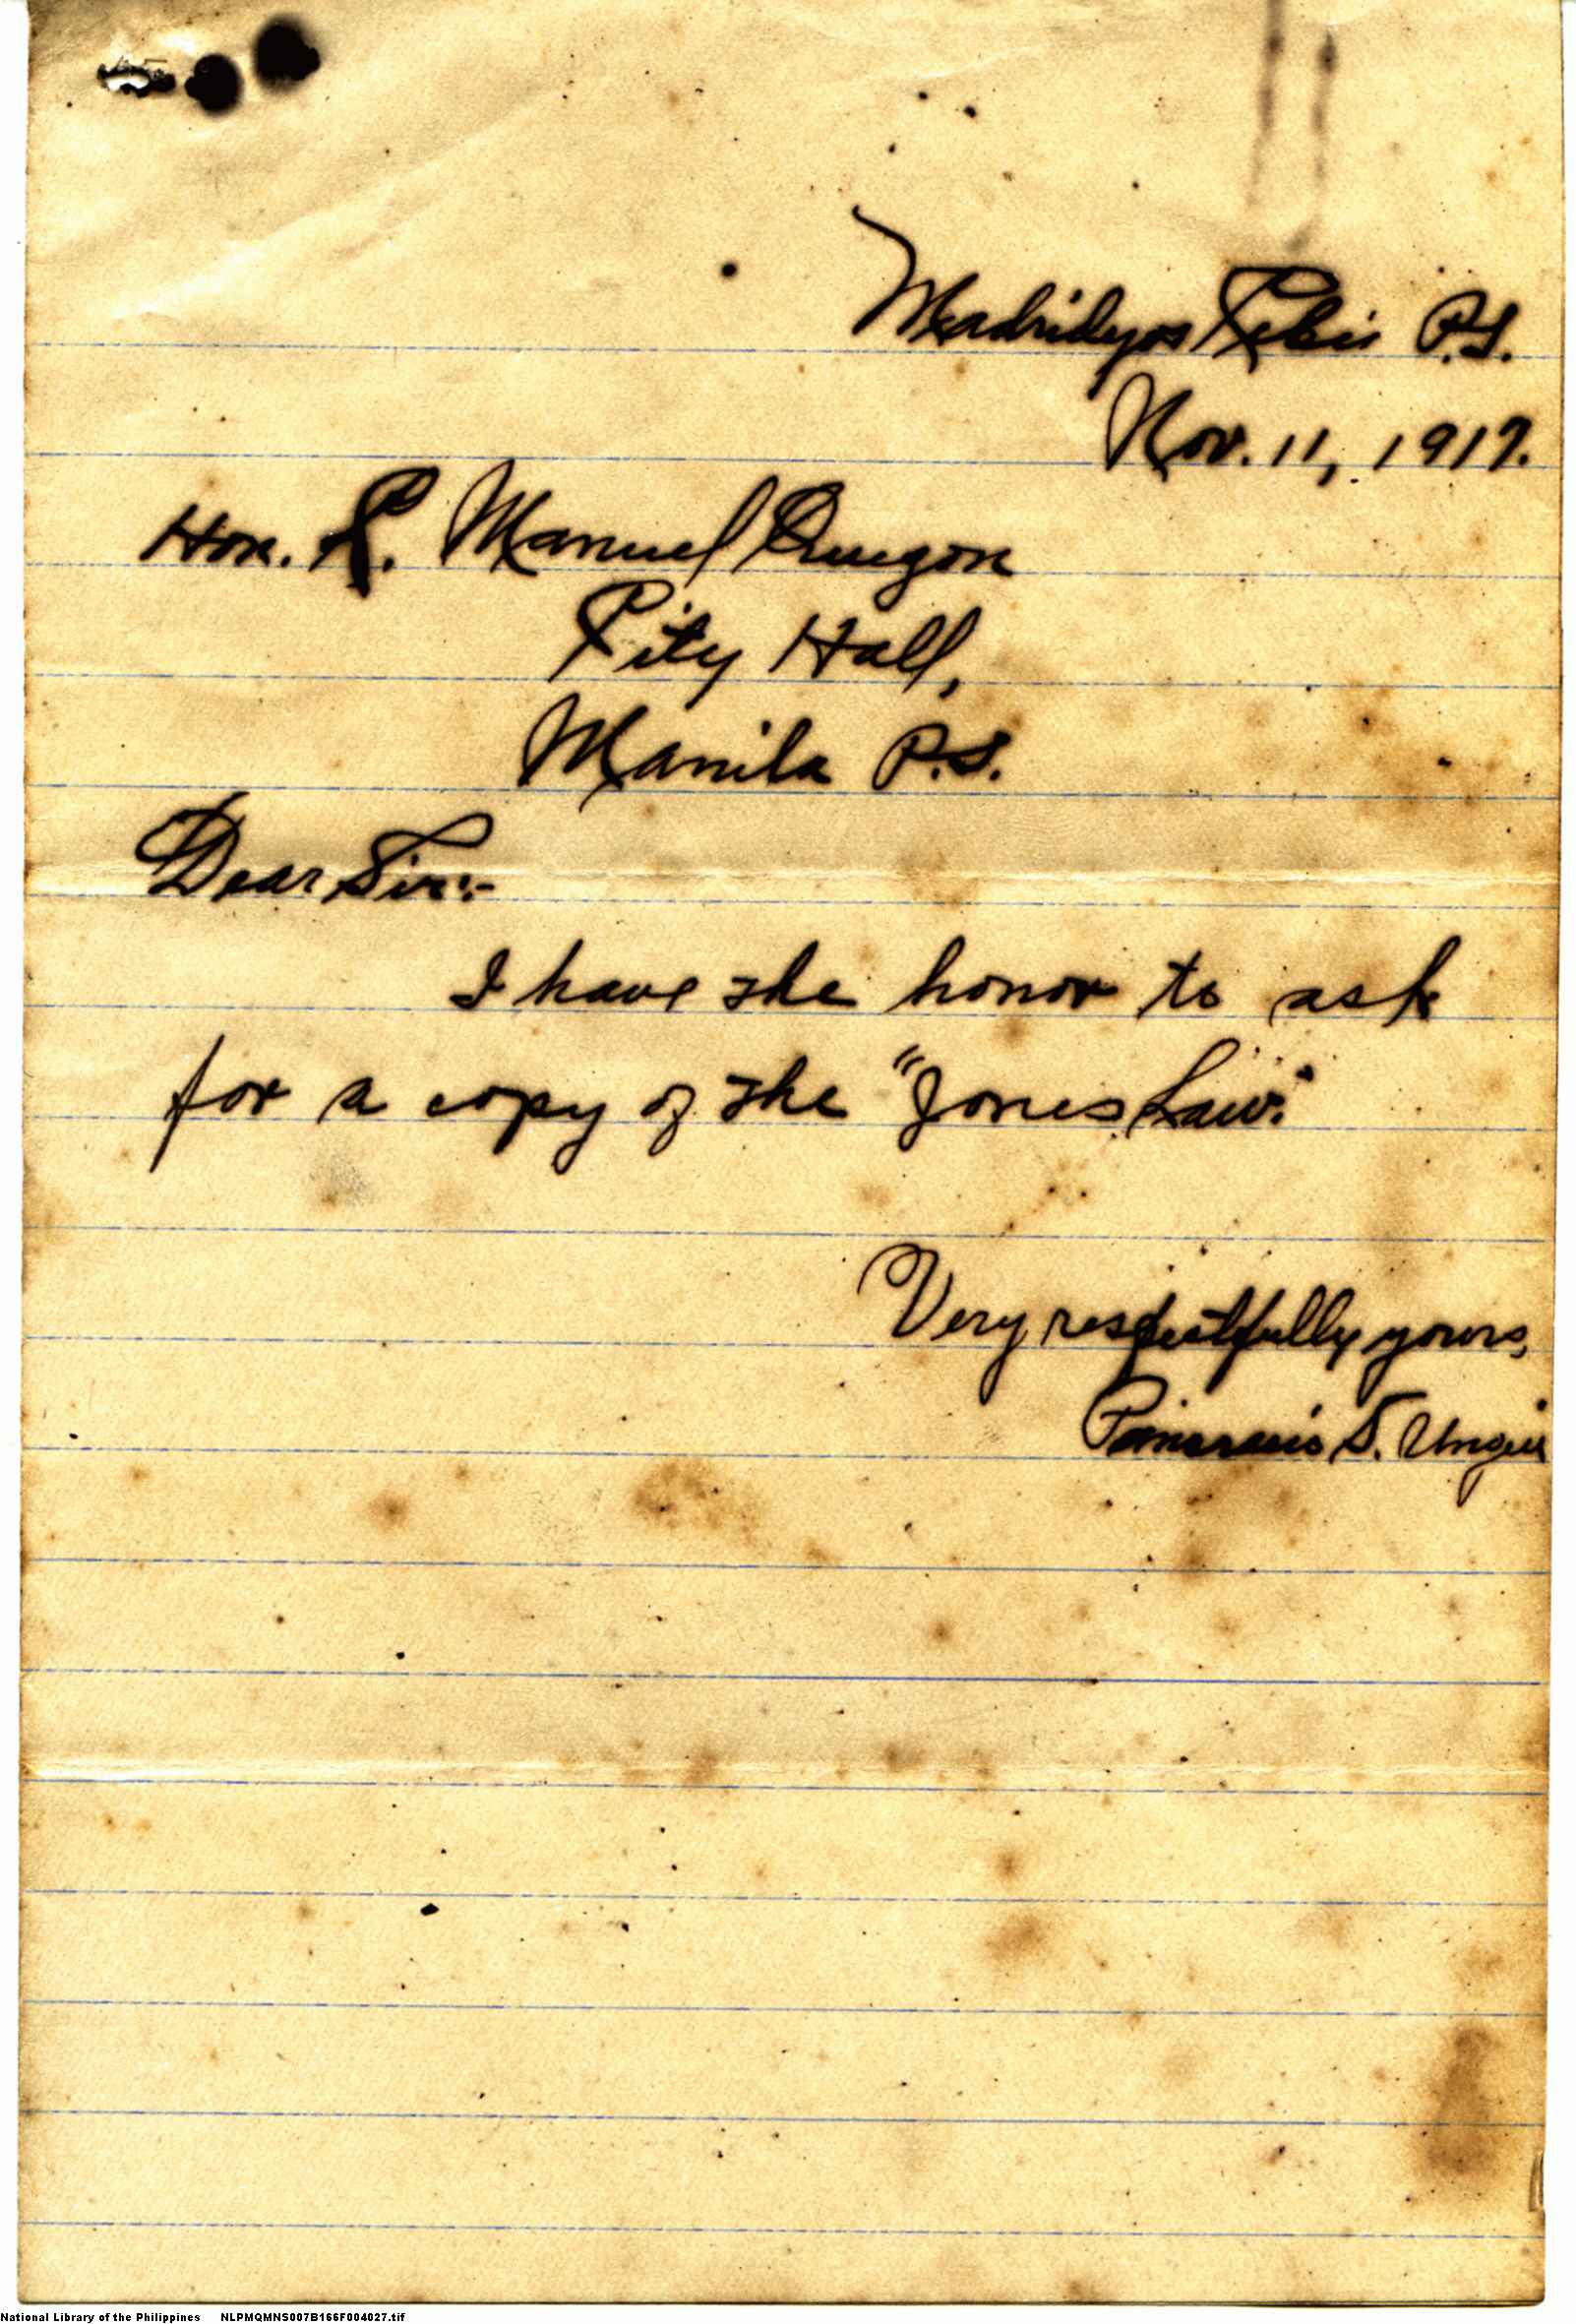 Madridejos Cebú P.I.
Nov. 11, 1917.
Hon. S. Manuel Quezon
City Hall,
Manila P.I.
Dear Sir:-
I have the honor to ask
for a copy of the "Jones Law."
Very respectfully yours,
S.
National Library of the Philippines NLPMQMNS007B166F004027.tif